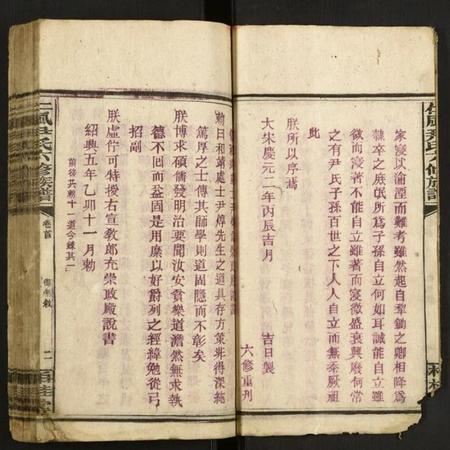 家寖以淪湮而難考雖然起自鞏鋤之卿相降爲
隸卒之庶氓所爲子孫自立何如耳誠能自立雖
微而寖著不能自立雖著而寖微盛衰興廢何常
之有尹氏子孫百世之下人人自立而無忝厥祖
此
朕所以序焉
大宋慶元二年丙辰吉月 吉日製
六修重刊
勅曰和靖處士尹焞先生之道具存方策非得深純
篤厚之士傳其師學則道固隱而不彰矣
朕博求碩儒發明治要聞汝安貧樂道澹然無求執
德不回而益固是用縻以好爵列之經緯勉從弓
招副
朕虛佇可特授右宣敎郎充崇政殿說書
紹興五年乙卯十一月勅
前後共勅十一道今錄其一
仁風尹氏六修族譜
卷首